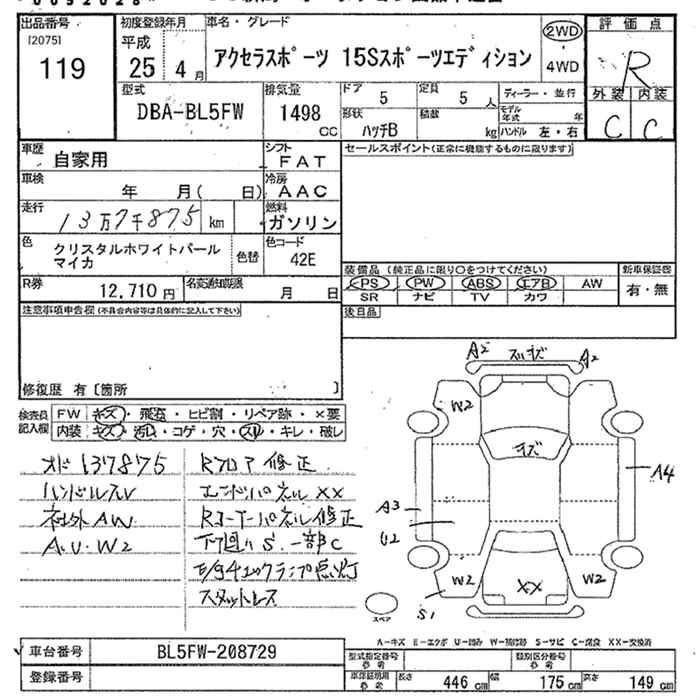 出品番号
[2075]
119
初度登録年月
平成
25 4月
車名・グレード
アクセラスポーツ 15Sスポーツエディション
2WD
4WD
評価点
R
外装 内装
C C
型式
DBA-BL5FW
排気量
1498
cc
ドア
5
定員
5 人
形状
ハッチB
積載
kg
ディーラー・並行
モデル年式 年
ハンドル 左・右
車歴
自家用
シフト
FAT
車検
年 月( 日)
冷房
AAC
走行
13万7千875 km
燃料
ガソリン
色
クリスタルホワイトパール
マイカ
色替
色コード
42E
R券
12,710 円
名変通知期限
月 日
セールスポイント(正常に機能するものに限ります)
装備品(純正品に限り○をつけてください)
PS PW ABS エアB AW
SR ナビ TV カワ
新車保証書
有・無
後日品
注意事項申告欄(不具合内容等は具体的に記入して下さい)
修復歴 有〔箇所 〕
検査員
記入欄
FW キズ・飛石・ヒビ割・リペア跡・×要
内装 キズ・汚れ・コゲ・穴・スレ・キレ・破レ
オド137875
ハンドルスレ
社外AW
A.U.W2
Rフロア修正
エンドパネルXX
Rコーナーパネル修正
下廻りS.一部C
E/gチェックランプ点灯
スタットレス
A2 スリキズ A2
W2
キズ
A4
A3
U2
W2 XX W2
S1
スペア
A-キズ E-エクボ U-凹み W-補修跡 S-サビ C-腐食 XX-交換済
車台番号
BL5FW-208729
登録番号
型式指定番号
参考
類別区分番号
参考
車庫証明用
参考
長さ 446 cm
幅 175 cm
高さ 149 cm